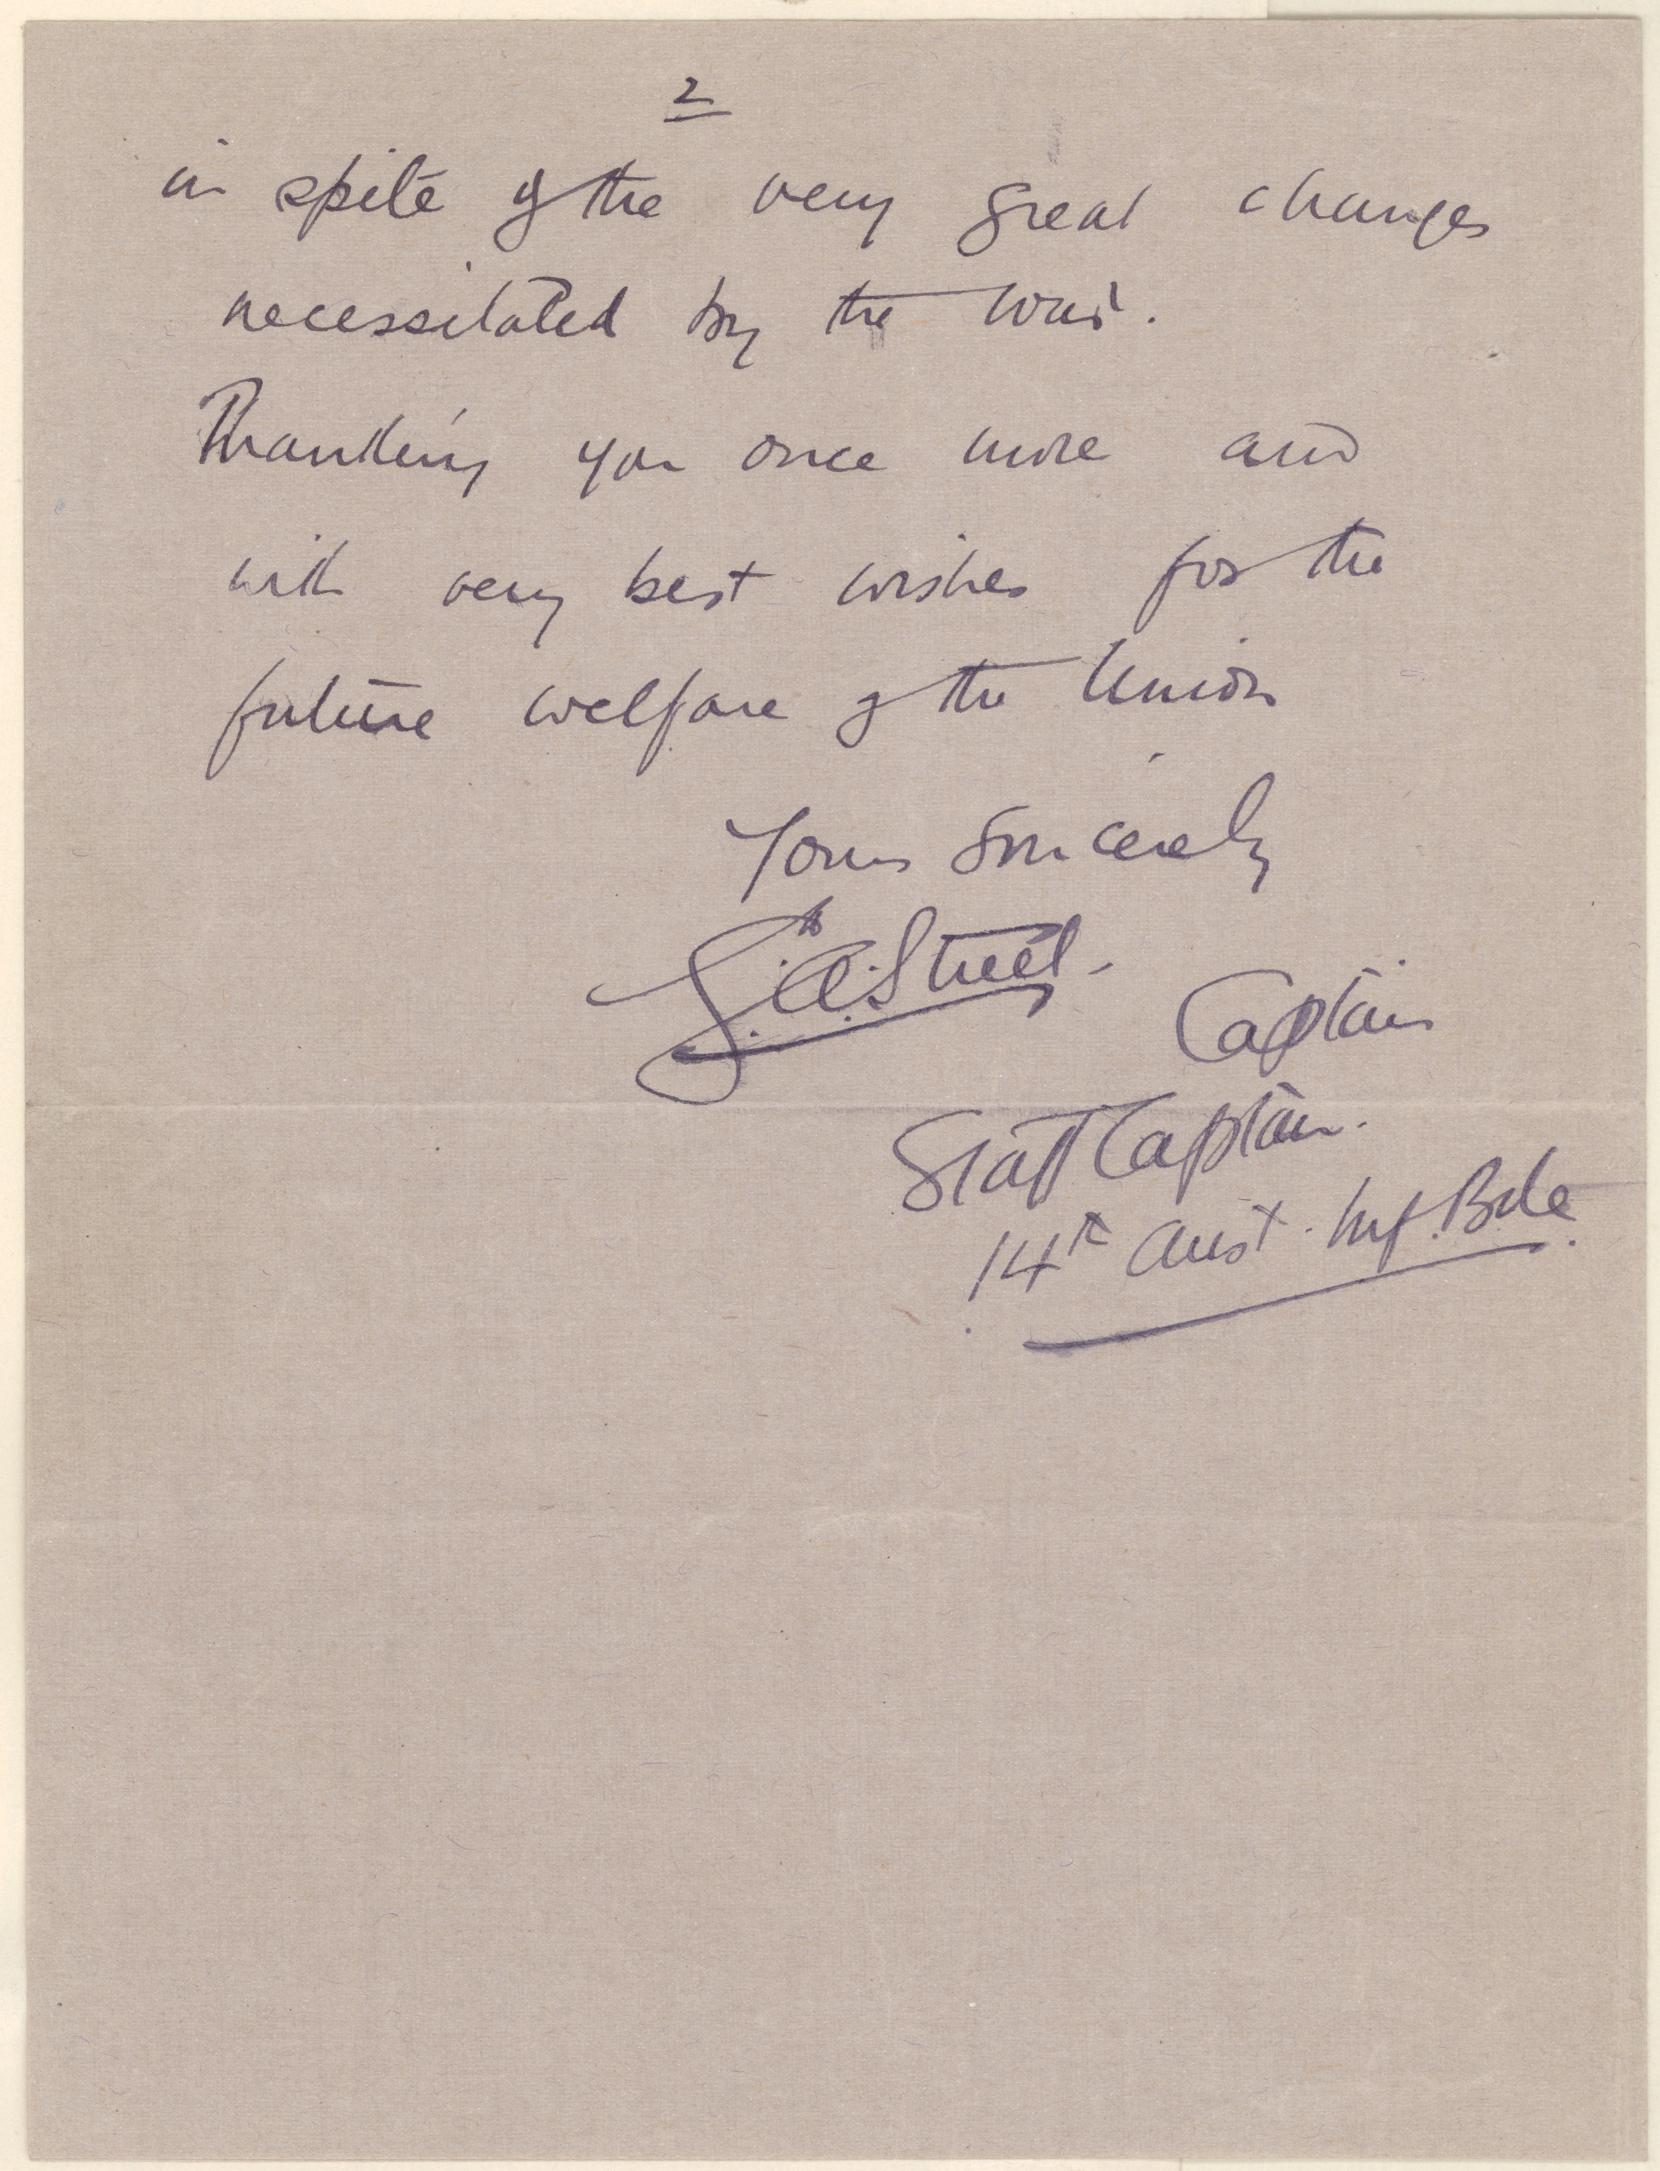 2
in spite of the very great changes
necessitated by the war.
Thanking you once more and
with very best wishes for the
future welfare of the Union
Yours Sincerely
G.A. Street.
Captain
Staff Captain.
14th Aust. Inf. Bde.